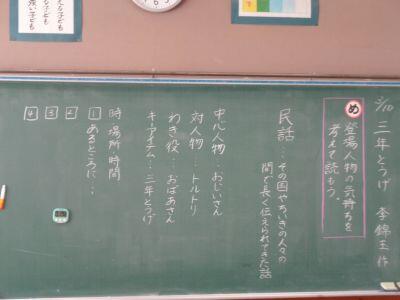 2/10 三年とうげ 李錦玉 作
め 登場人物の気持ちを
考えて読もう。
民話…その国やちいきの人々の
間で長く伝えられてきた話
中心人物…おじいさん
対人物…トルトリ
わき役…おばあさん
キーアイテム…三年とうげ
時・場所・時間
1 あるところに…
2
3
4
える子ども
子ども
強い子ども